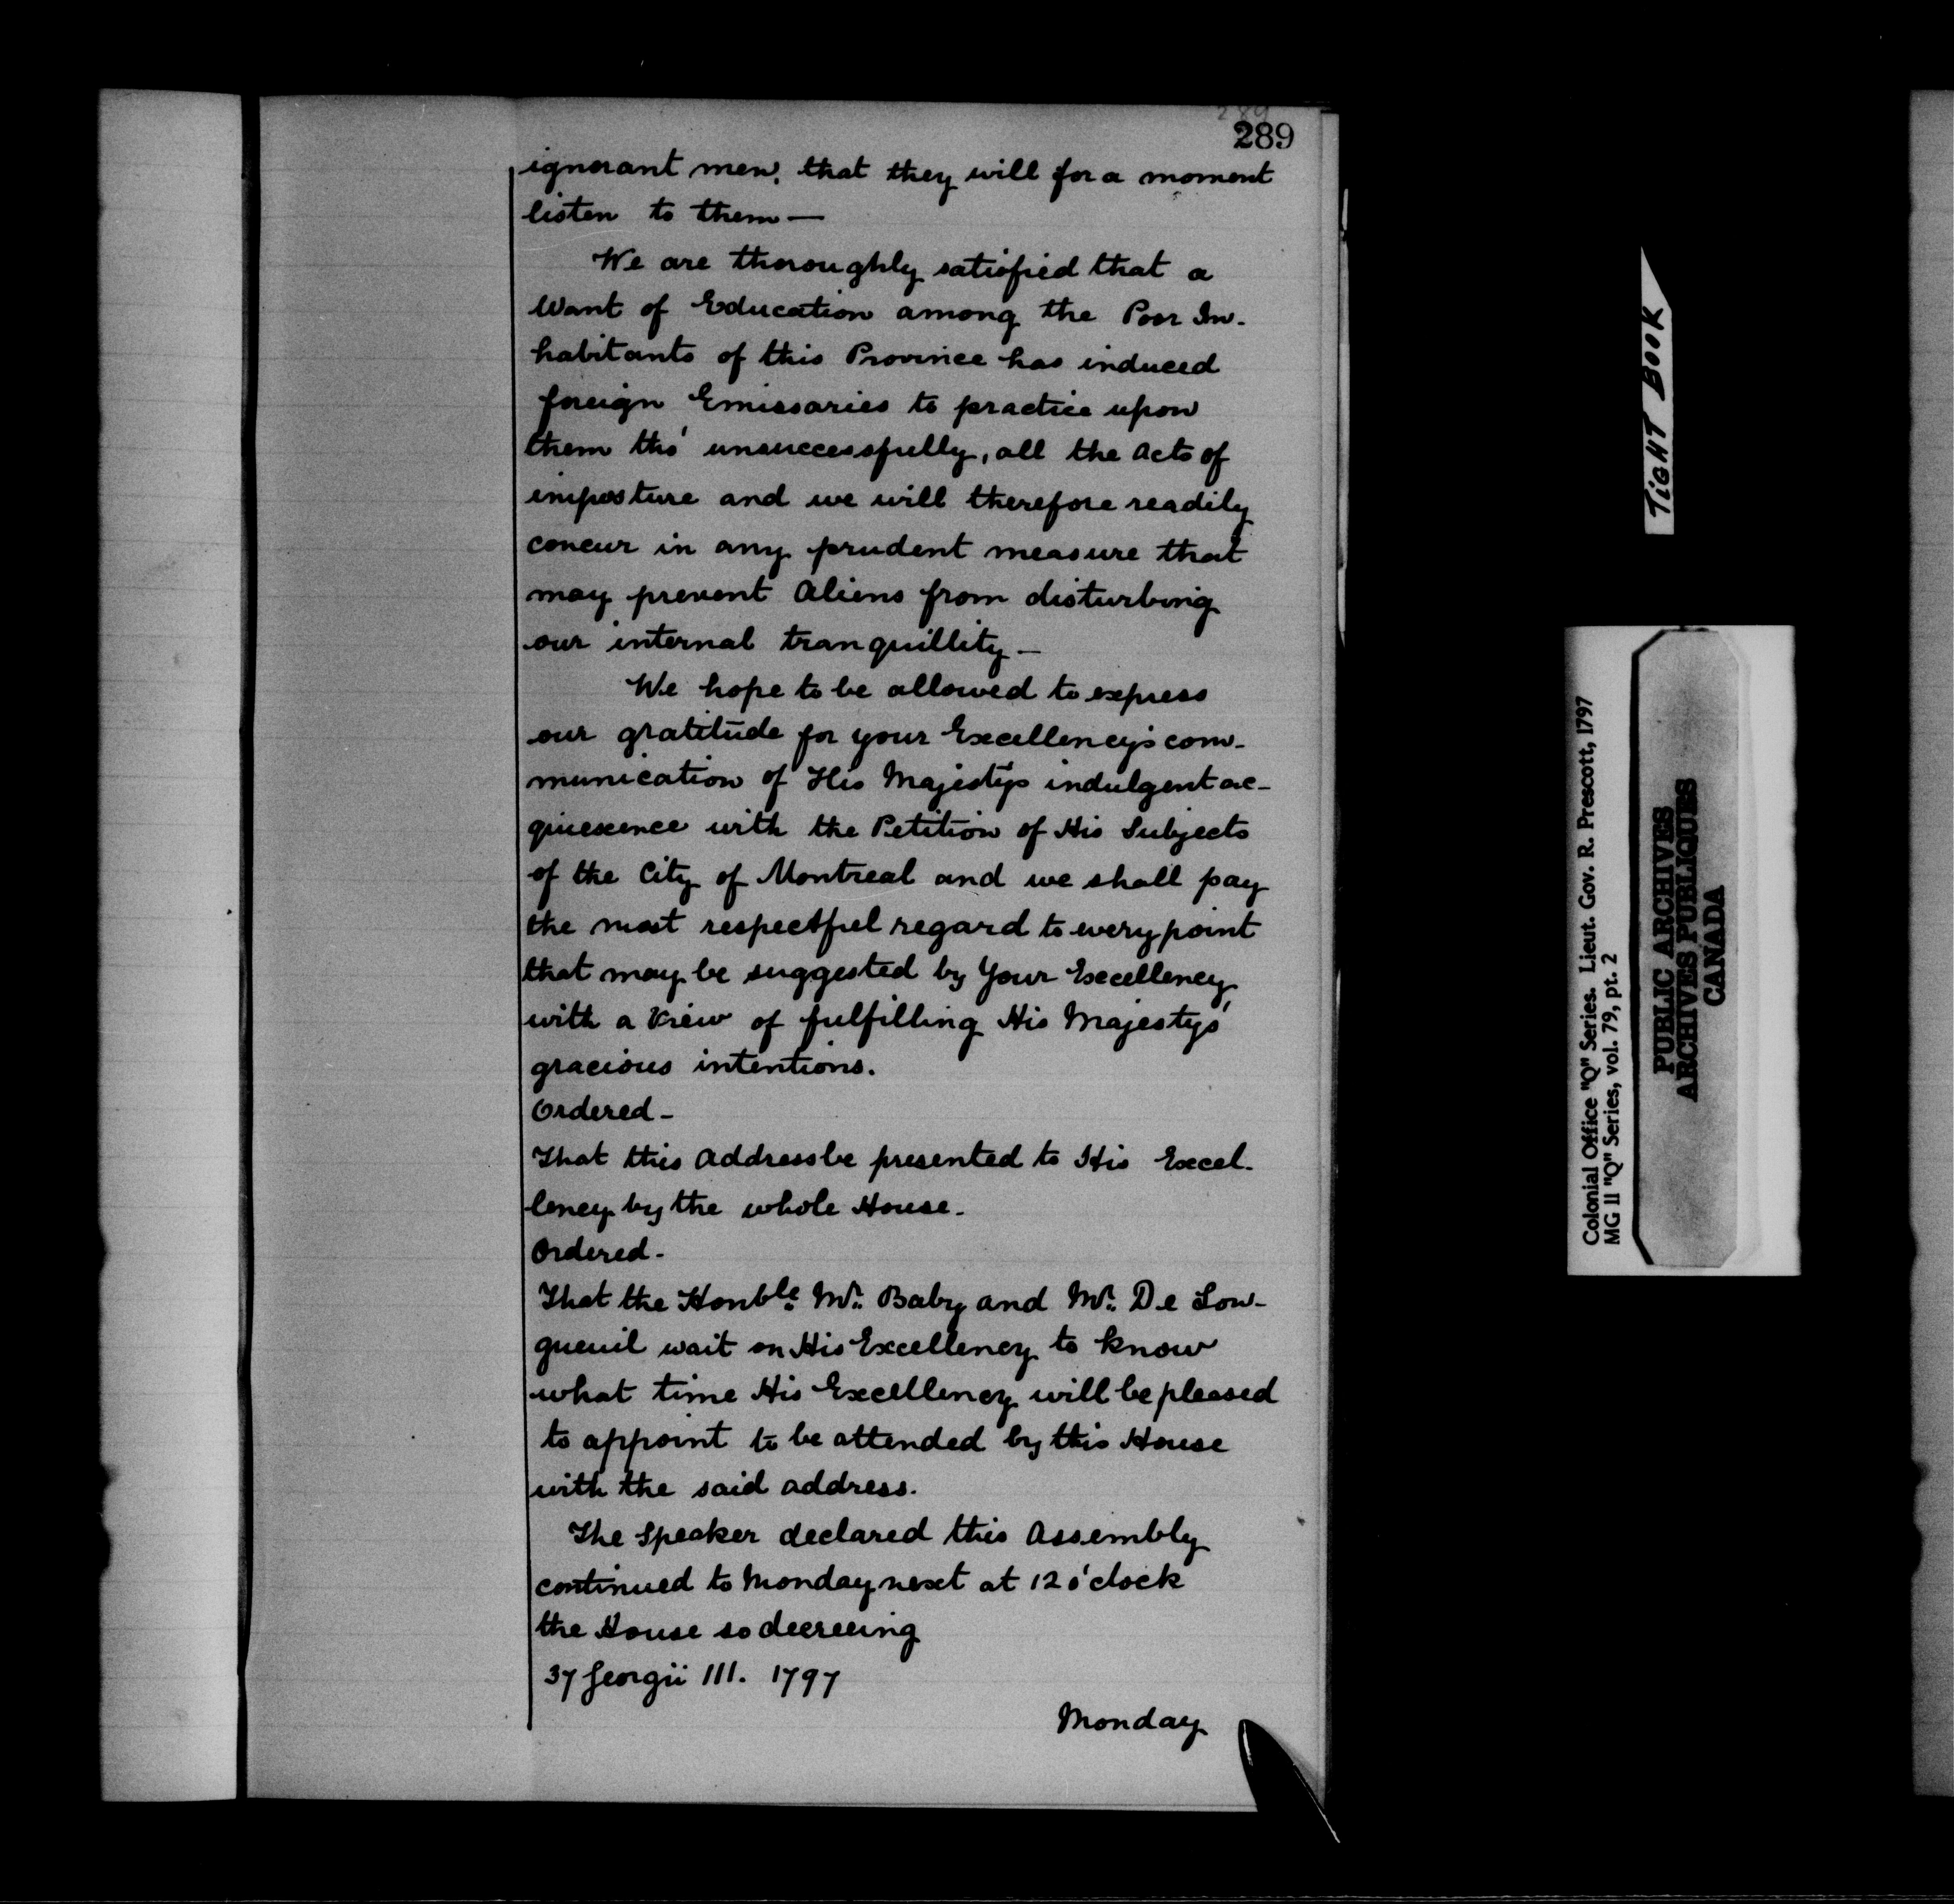 289
289
ignorant men, that they will for a moment
listen to them —
We are thoroughly satisfied that a
Want of Education among the Poor In-
habitants of this Province has induced
foreign Emissaries to practice upon
them tho' unsuccessfully, all the Acts of
imposture and we will therefore readily
concur in any prudent measure that
may prevent Aliens from disturbing
our internal tranquillity —
We hope to be allowed to express
our gratitude for your Excellency's com-
munication of His Majesty's indulgent ac-
quiescence with the Petition of His Subjects
of the City of Montreal and we shall pay
the most respectful regard to every point
that may be suggested by Your Excellency
with a View of fulfilling His Majestys'
gracious intentions.
Ordered -
That this Address be presented to His Excel-
lency by the whole House.
Ordered -
That the Honble. Mr. Baby and Mr. De Lon-
gueuil wait on His Excellency to know
what time His Excellency will be pleased
to appoint to be attended by this House
with the said address.
The Speaker declared this Assembly
continued to Monday next at 12 o'clock
the House so decreeing
37 Georgii III. 1797
Monday
TIGHT BOOK
Colonial Office "Q" Series. Lieut. Gov. R. Prescott, 1797
MG 11 "Q" Series, vol. 79, pt. 2
PUBLIC ARCHIVES
ARCHIVES PUBLIQUES
CANADA